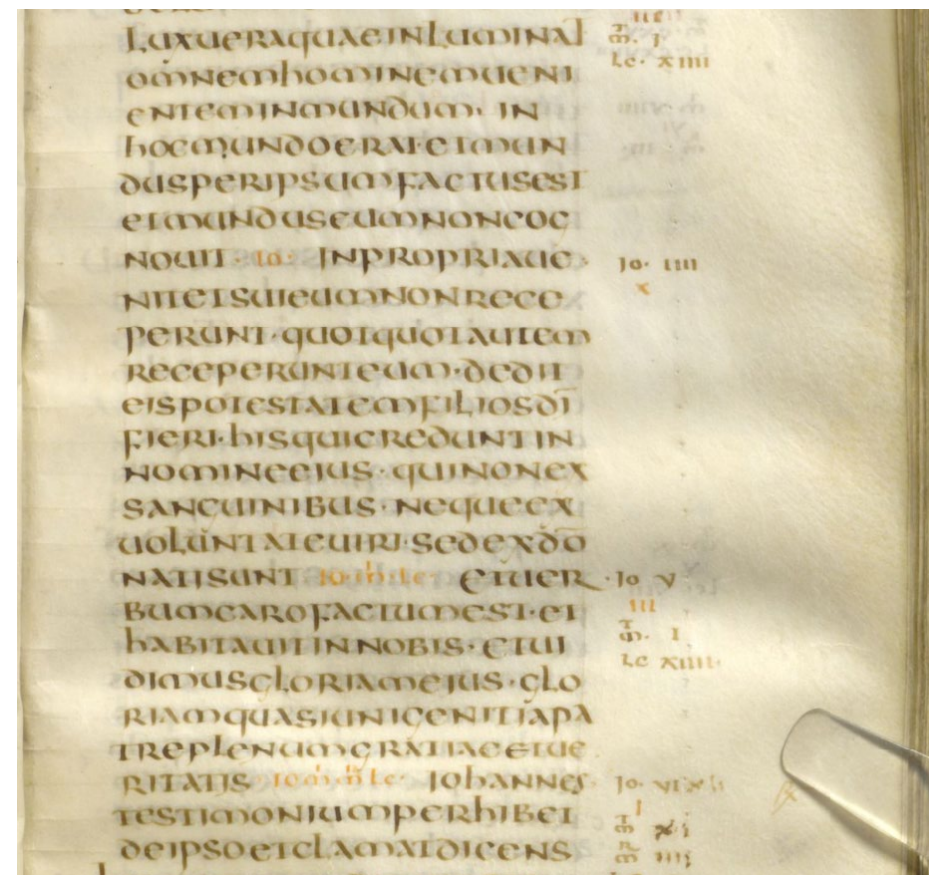 LUXUERAQUAEINLUMINAT III m̄. I
OMNEMHOMINEMUENI Lc. XIIII
ENTEMINMUNDUM· IN
HOCMUNDOERAT·ETMUN
DUSPERIPSUMFACTUSEST
ETMUNDUSEUMNONCOG
NOUIT· IO· INPROPRIAUE Io. IIII
NITETSUIEUMNONRECE X
PERUNT·QUOTQUOTAUTEM
RECEPERUNTEUM·DEDIT
EISPOTESTATEMFILIOSD̄I
FIERI·HISQUICREDUNTIN
NOMINEEIUS·QUINONEX
SANGUINIBUS·NEQUEEX
UOLUNTATEUIRI·SEDEXD̄O
NATISUNT Io·m̄t·Lc· ETUER Io V
BUMCAROFACTUMEST·ET III
HABITAUITINNOBIS·ETUI m̄. I
DIMUSGLORIAMEIUS·GLO Lc XIIII·
RIAMQUASIUNIGENITIAPA
TREPLENUMGRATIAEETUE
RITATIS IOHANNES Io· VI
TESTIMONIUMPERHIBET I
DEIPSOETCLAMATDICENS